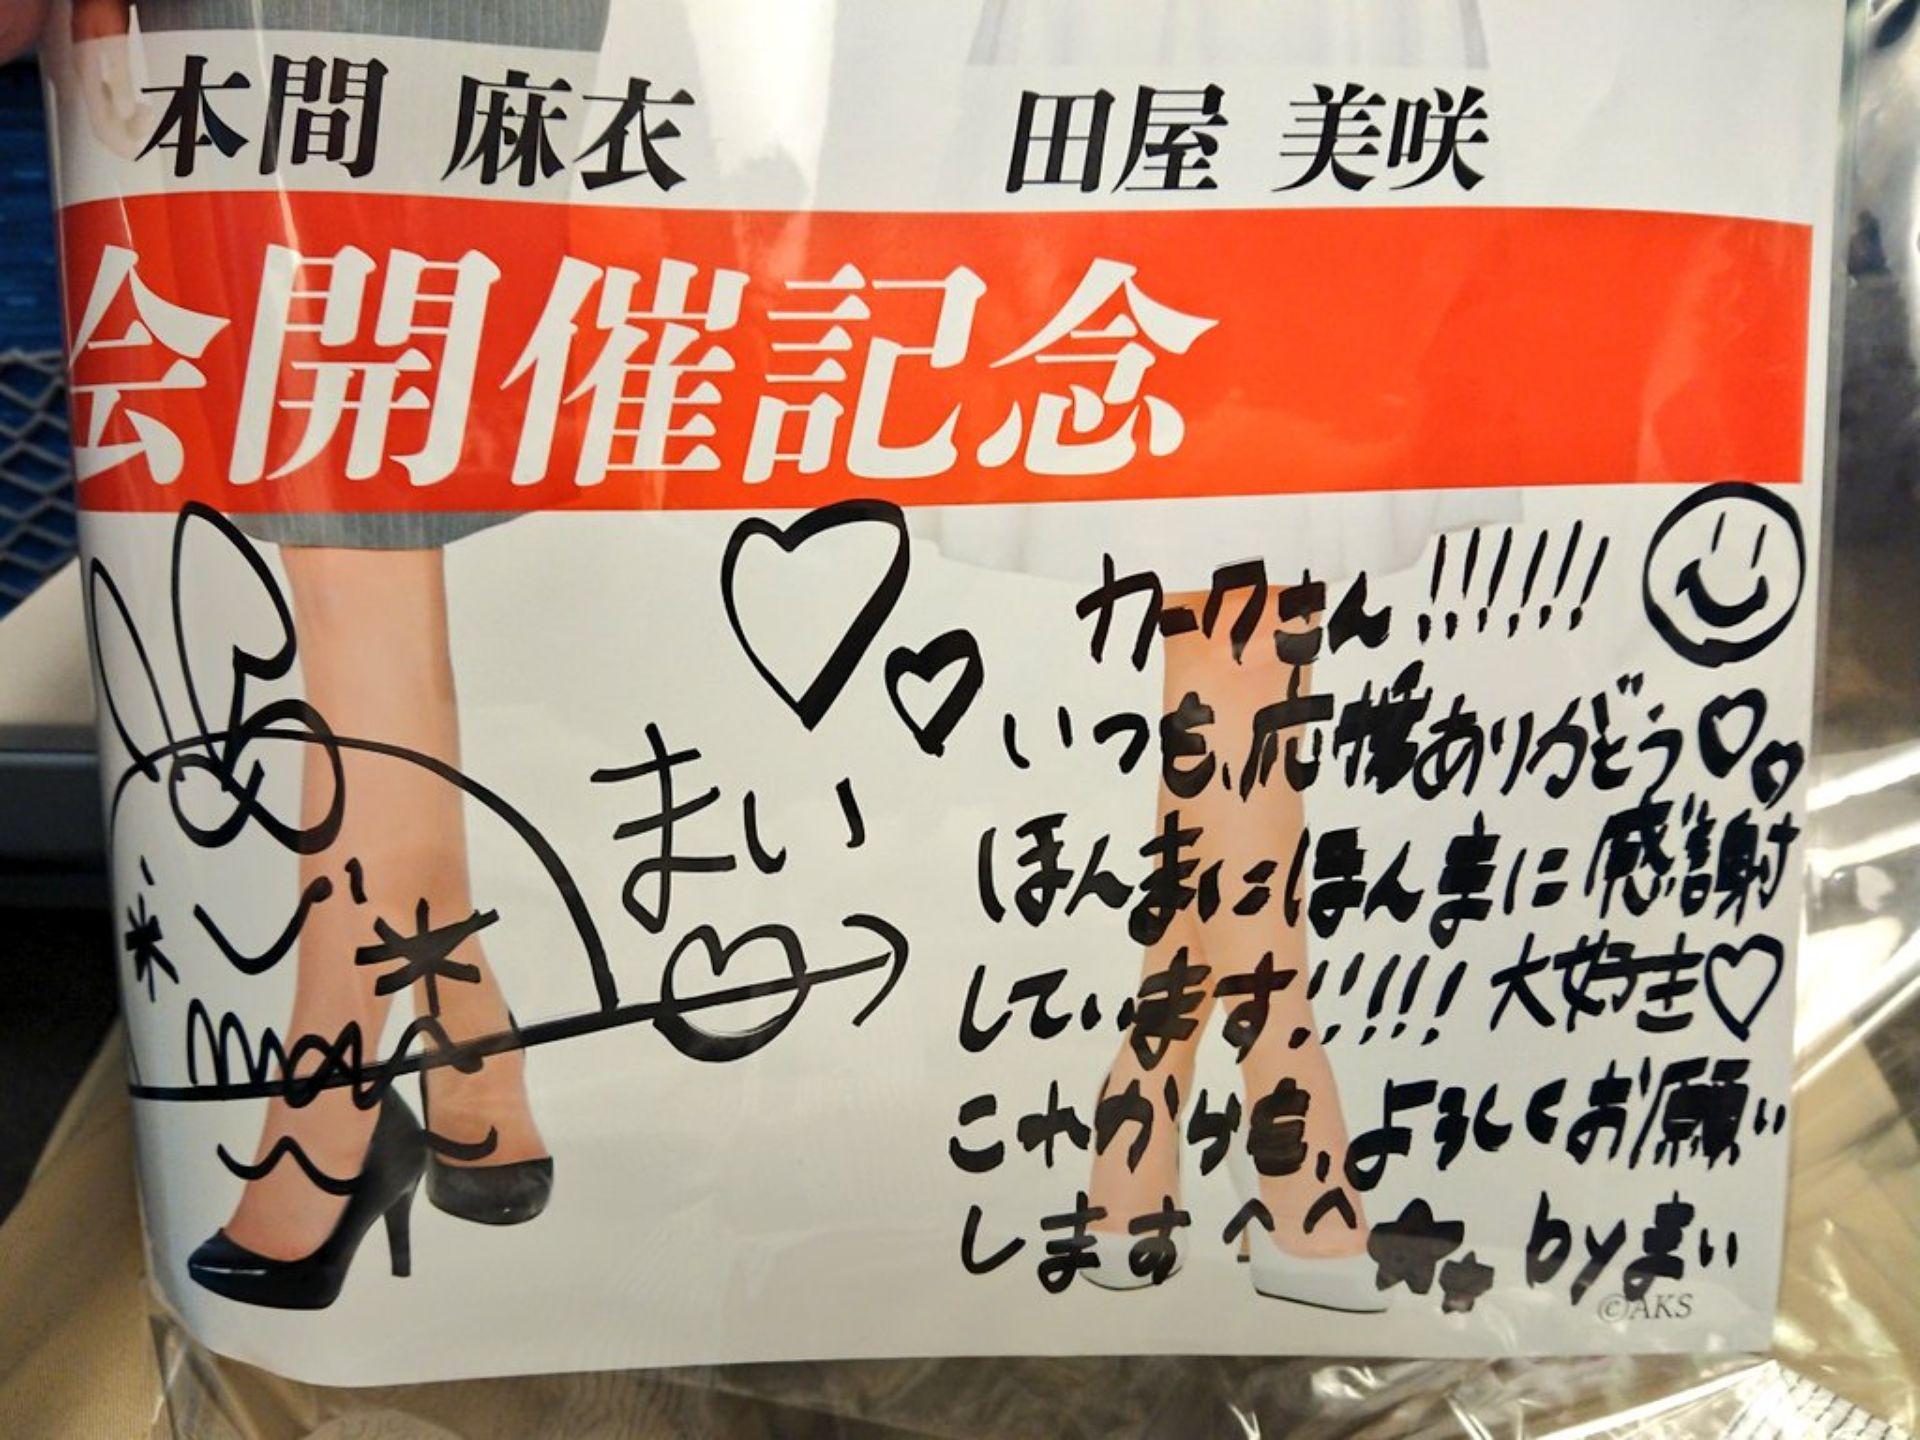 本間 麻衣
田屋 美咲
会開催記念
カークさん!!!!!!
いつも、応援ありがどう♡♡
ほんまにほんまに感謝
しています!!!!! 大好き♡
これからも、よろしくお願い
します^^☆☆ byまい
まい
mai
©AKS